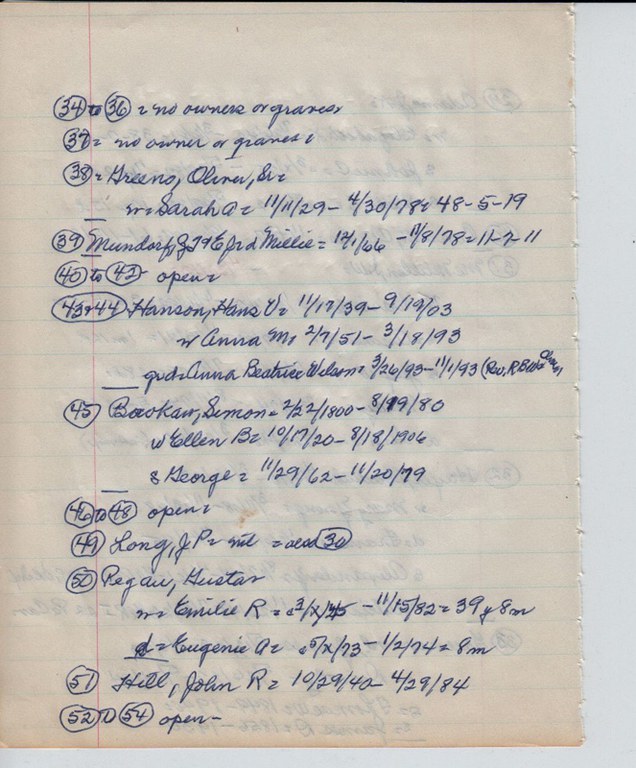 34 to 36 = no owners or graves
37 = no owner or graves
38 = Greeno, Oliver, Sr =
w = Sarah A = 11/11/29 - 4/30/78 = 48-5-19
39 Mundorf, d Millie = - 11/8/78 = 11-7-11
40 to 42 open =
43+44 Hanson, Hans V = 11/17/39 - 9/19/03
w Anna M = 2/7/51 - 3/18/93
gd = Anna Beatrice Wilson = 3/26/93 - 11/1/93 (Rev. R B
45 Bookaw, Simon = 2/22/1800 - 8/19/80
w Ellen B = 10/17/20 - 8/18/1906
s George = 11/29/62 - 11/20/79
46 to 48 open =
49 Long, J P = = also 30
50 Pegau, Gustav
w = Emilie R = - 11/15/82 = 39y 8m
d = Eugenie A = c 5/x/73 - 1/2/74 = 8m
51 Hill, John R = 10/29/40 - 4/29/84
52 to 54 open -